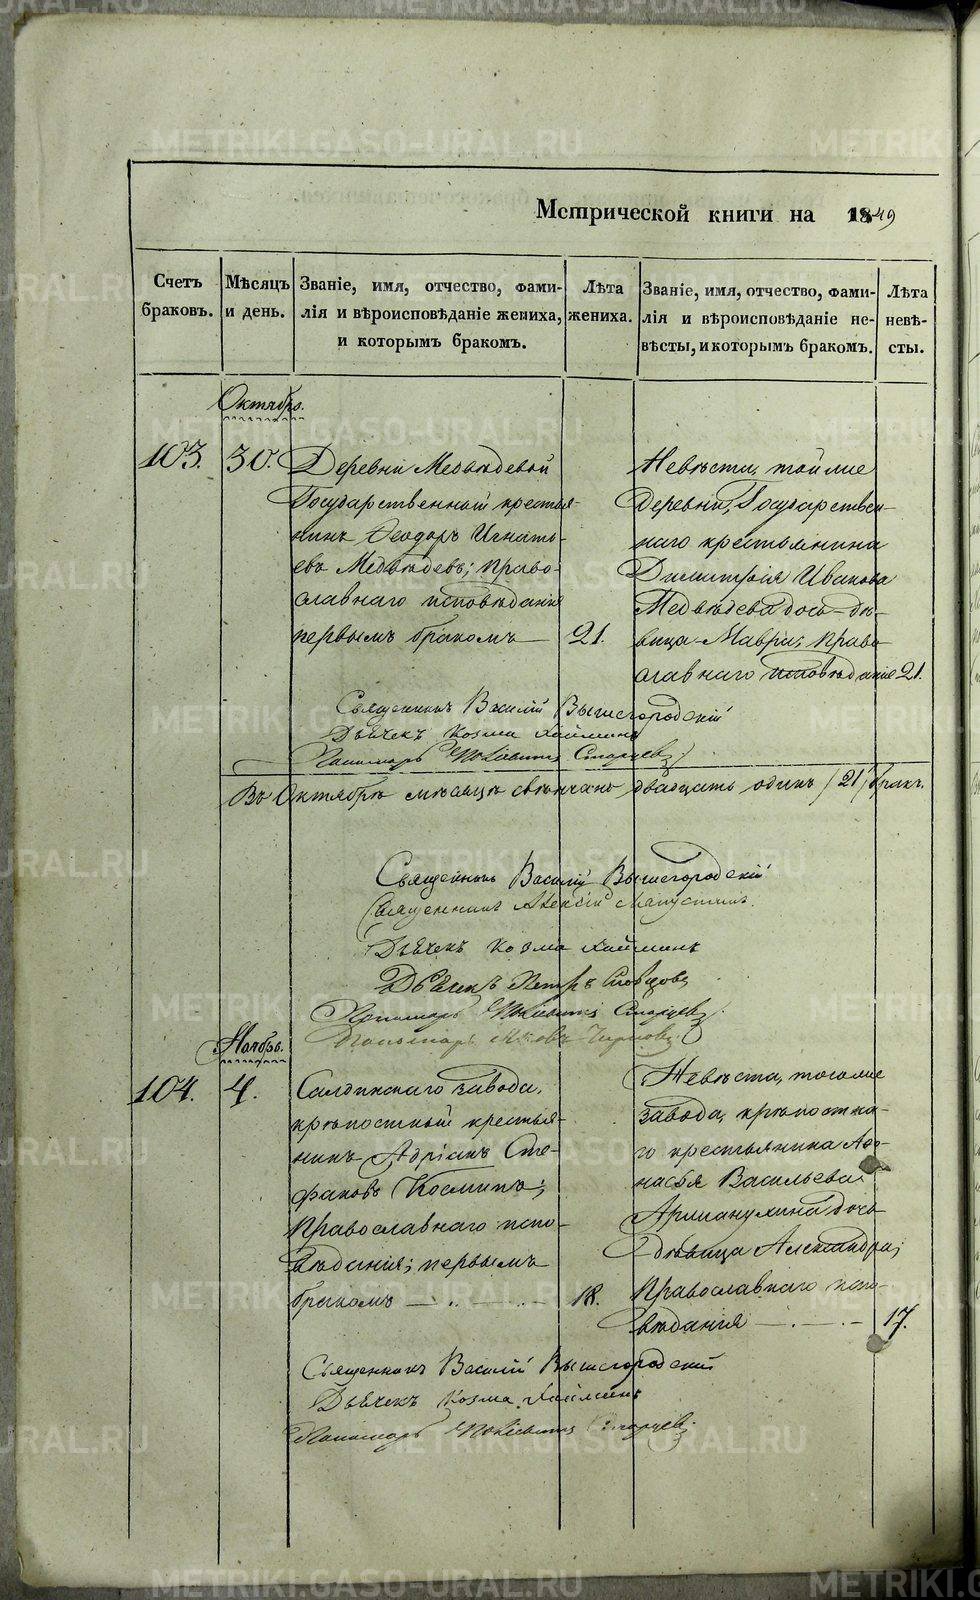 METRIKI.GASO-URAL.RU
Метрической книги на 1849
Счетъ браковъ.
Мѣсяцъ и день.
Званіе, имя, отчество, фами-
лія и вѣроисповѣданіе жениха,
и которымъ бракомъ.
Лѣта жениха.
Званіе, имя, отчество, фами-
лія и вѣроисповѣданіе не-
вѣсты, и которымъ бракомъ.
Лѣта невѣ-
сты.
Октябрь.
103.
30.
Деревни Медвѣдевой
Государственный крестья-
нинъ Ѳеодоръ Игнать-
евъ Медвѣдевъ; право-
славнаго исповѣданія
первымъ бракомъ —
21.
Невѣста, той же
деревни, Государствен-
наго крестьянина
Димитрія Иванова
Медвѣдева дочь дѣ-
вица Мавра; право-
славнаго исповѣданія
21.
Священникъ Василій Вышегородскій
Дьячекъ Козма
Пономарь Старцевъ
Въ Октябрѣ мѣсяцѣ свѣнчано двадцать одинъ /21/ бракъ.
Священникъ Василій Вышегородскій
Священникъ Алексій
Дьячекъ Козма
Дьячекъ Петръ Словцовъ
Пономарь Старцевъ
Пономарь
Ноябрь.
104.
4.
Салдинскаго завода,
крѣпостный крестья-
нинъ Адріанъ Сте-
фановъ Косминъ;
Православнаго испо-
вѣданія; первымъ
бракомъ —
18.
Невѣста, тогоже
завода, крѣпостна-
го крестьянина Аѳо-
насья Васильева
дочь
дѣвица Александра;
Православнаго испо-
вѣданія —
17.
Священникъ Василій Вышегородскій
Дьячекъ Козма
Пономарь Старцевъ